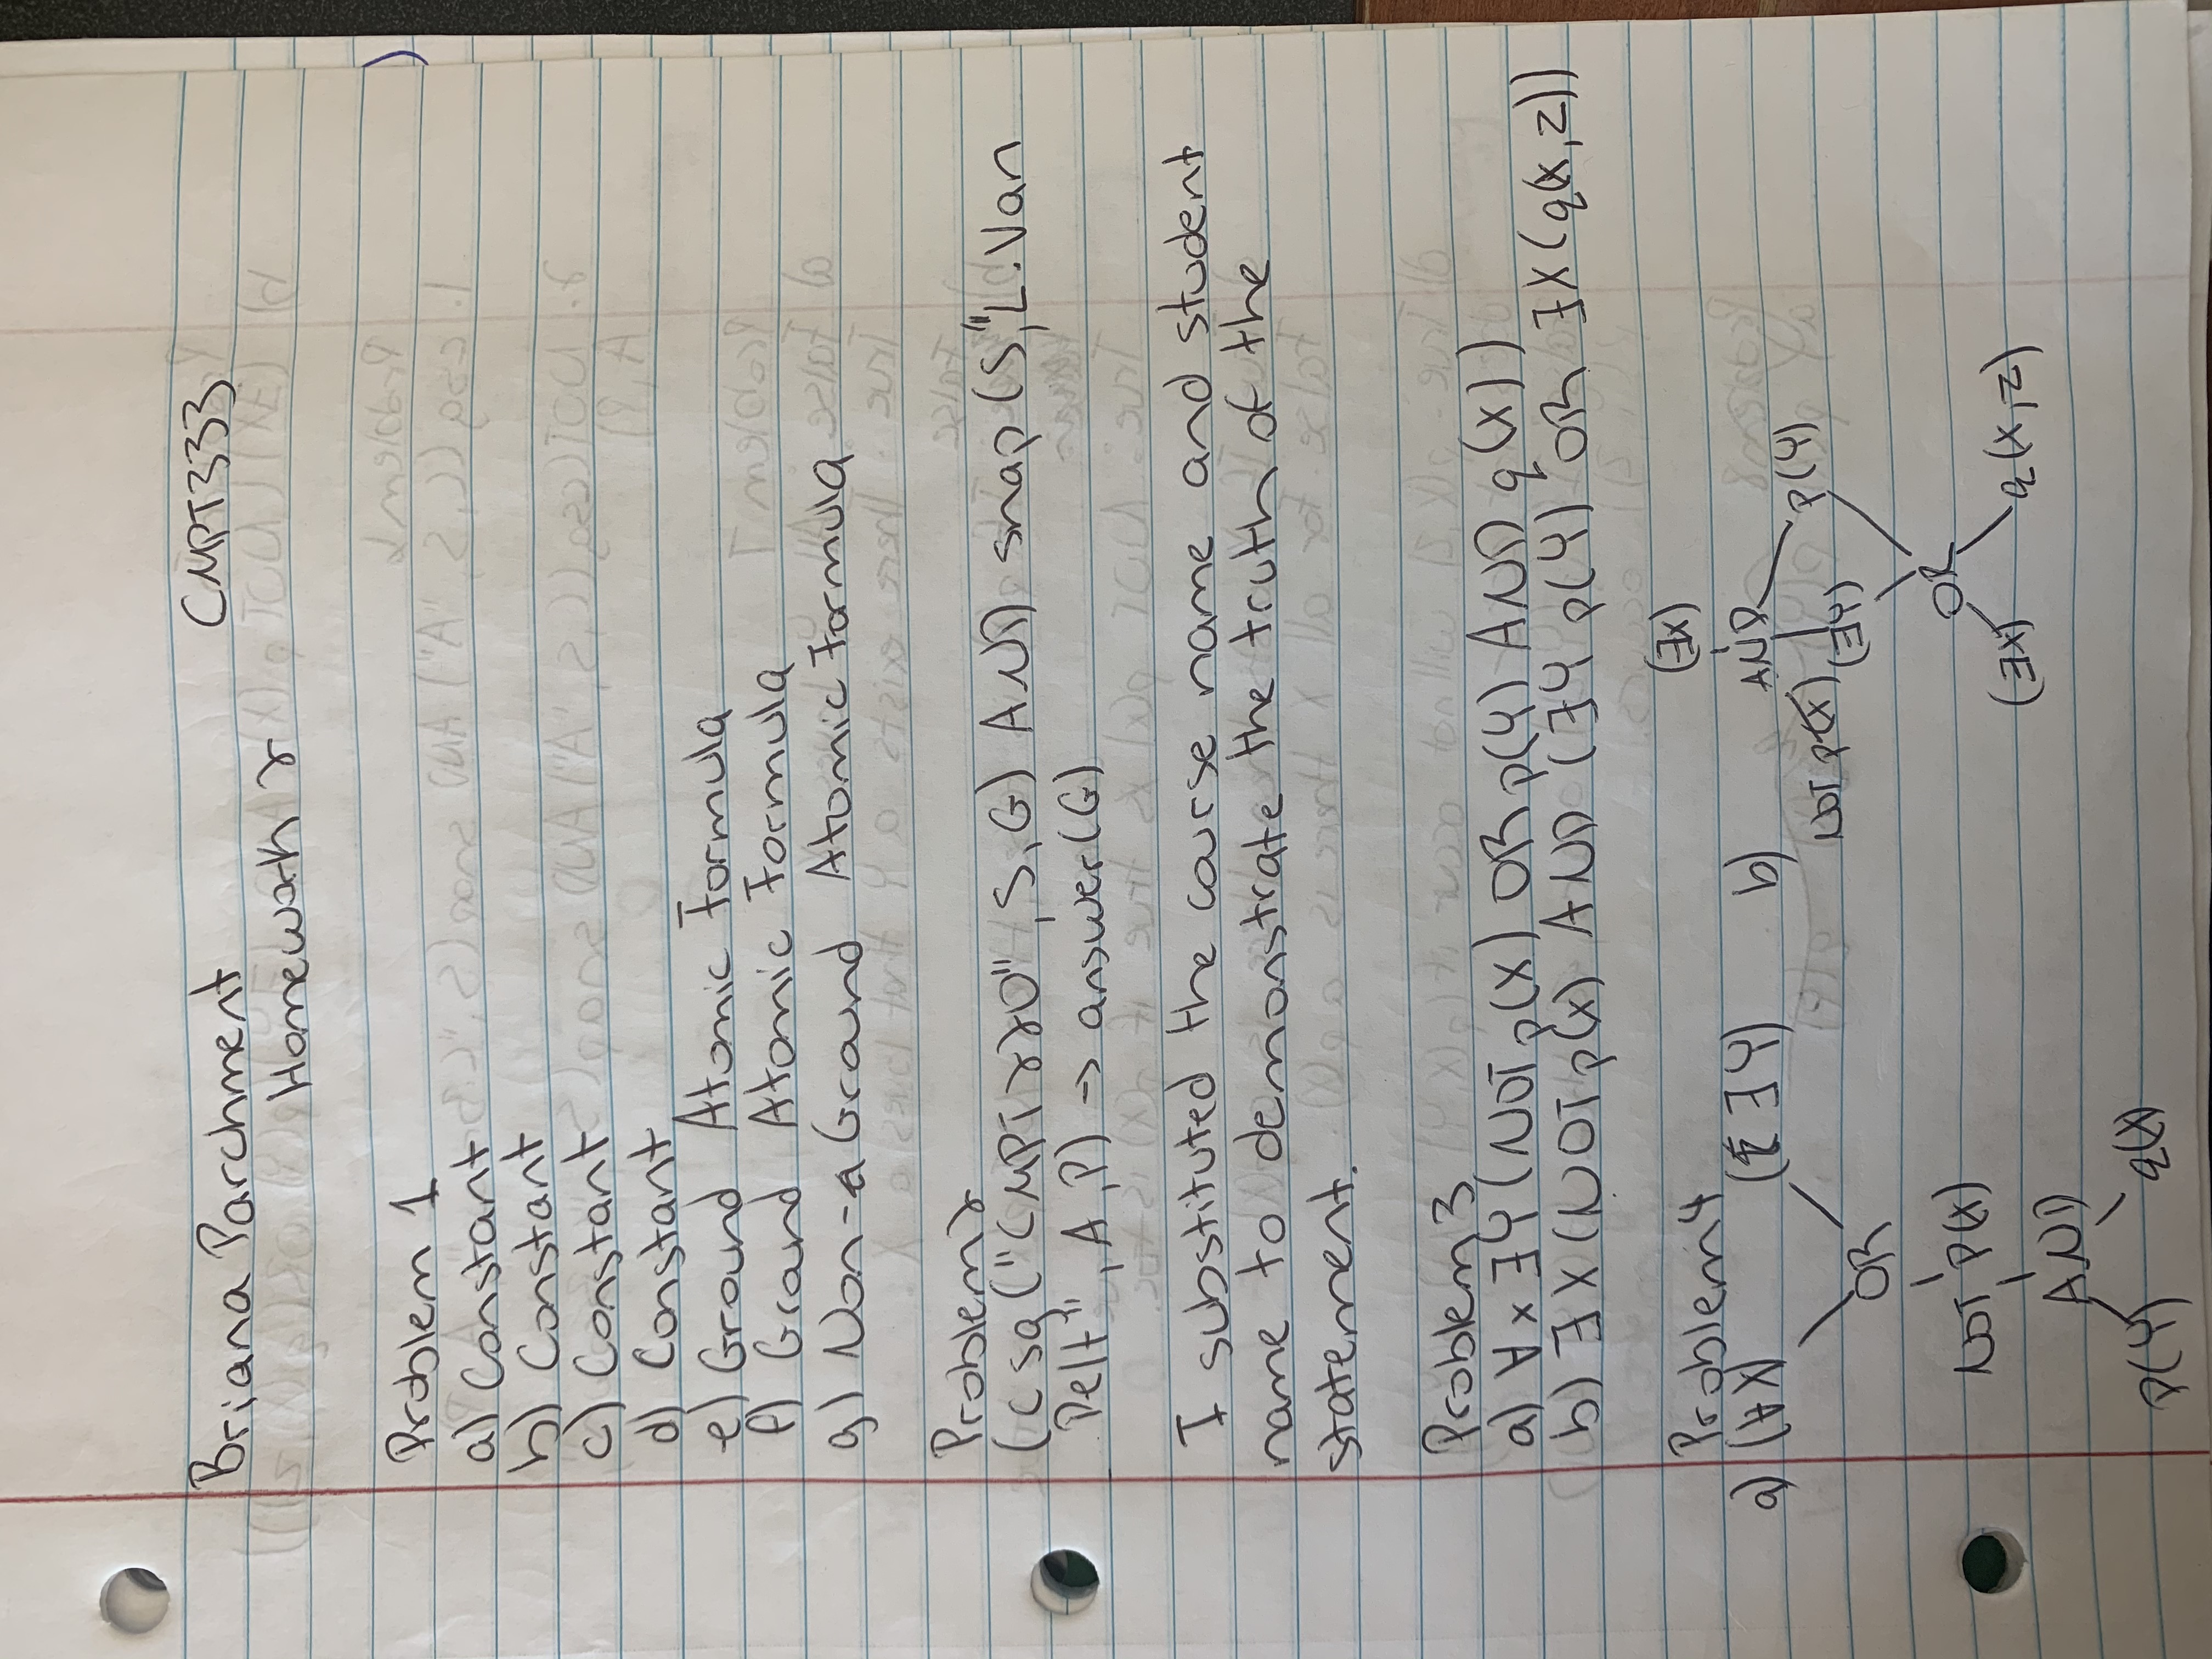 Briana Parchment CMPT333
Homework 2
Problem 1
a) Constant
b) Constant
c) Constant
d) Constant
e) Ground Atomic Formula
f) Ground Atomic Formula
g) Non-Ground Atomic Formula
Problem 2
(csg("CMPT220", S, G) AND snap(S, "L. Van
Pelt", A, P) → answer(G)
I substituted the course name and student
name to demonstrate the truth of the
statement.
Problem 3
a) ∀x ∃Y (NOT p(X) OR p(Y) AND q(X))
b) ∃X (NOT p(X) AND (∃Y p(Y) OR ∃X (q(X, Z))
Problem 4
a) (∀X) (∃Y)
OR
NOT P(X)
AND
P(Y) q(X)
b) (∃X)
AND
NOT P(X) (∃Y) P(Y)
OR
(∃X) q(X, Z)